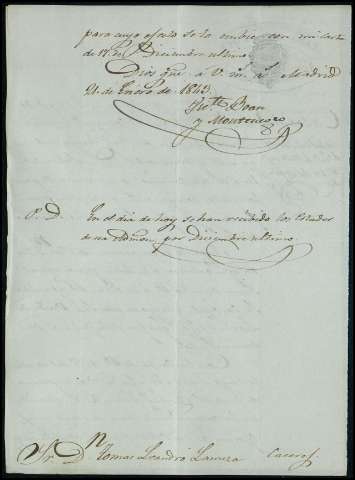 para cuyo efecto se lo embie con mi carta
de 17 de Diciembre ultimo
Dios gue á V. m. a.s Madrid
21 de Enero de 1843.
Boan
y Montenegro
P. D. En el dia de hoy se han recibido los Estados
de por Diciembre ultimo.
Sr. Dn Tomas Leandro Caceres.